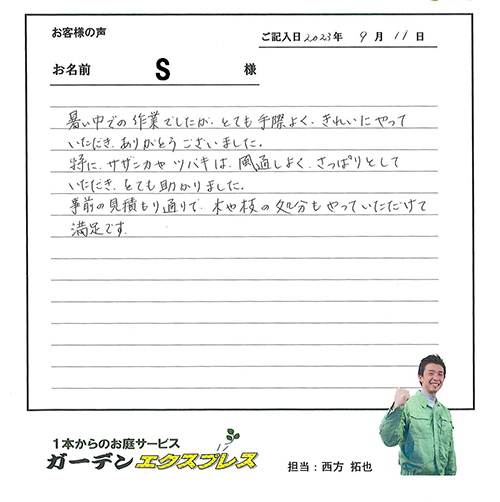 お客様の声
ご記入日 2023年 9月 11日
お名前 S 様
暑い中での作業でしたが、とても手際よく、きれいにやって
いただき、ありがとうございました。
特に、サザンカやツバキは、風通しよく、さっぱりとして
いただき、とても助かりました。
事前の見積もり通りで、木や枝の処分もやっていただけて
満足です。
1本からのお庭サービス
ガーデンエクスプレス
担当：西方 拓也